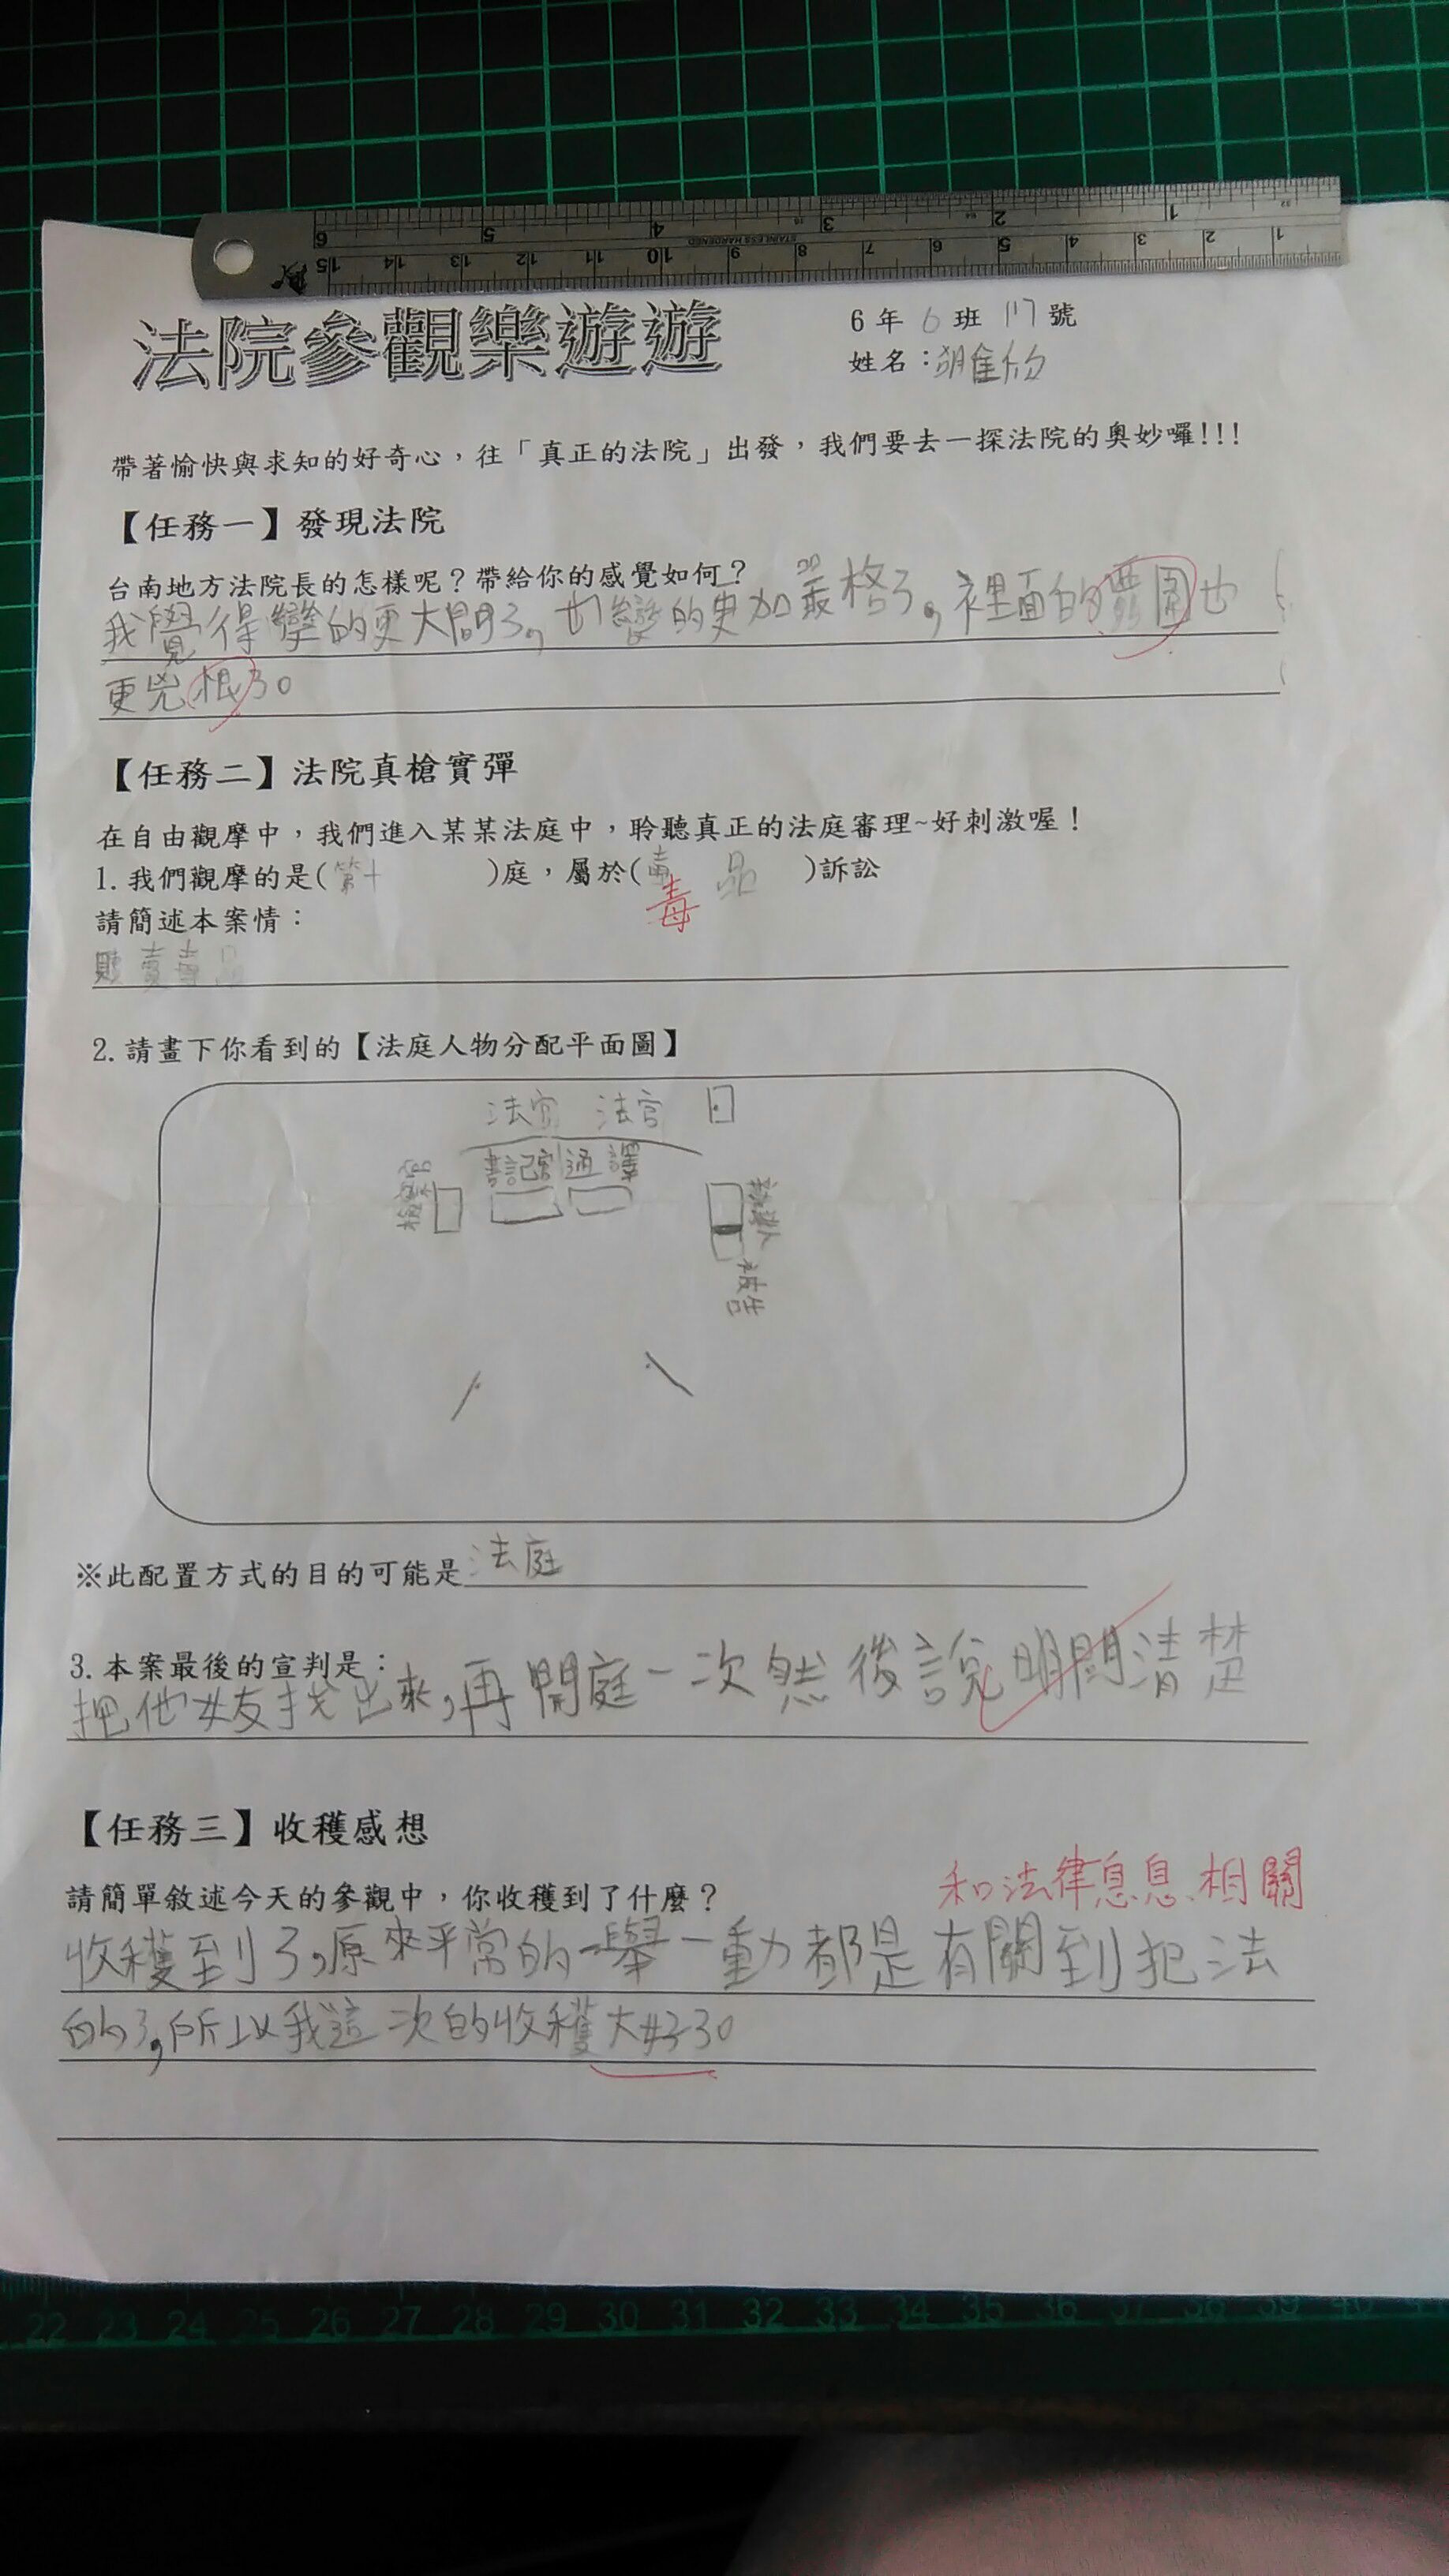 法院參觀樂遊遊
6 年 6 班 17 號
姓名：胡
帶著愉快與求知的好奇心，往「真正的法院」出發，我們要去一探法院的奧妙囉!!!
【任務一】發現法院
台南地方法院長的怎樣呢？帶給你的感覺如何？
我覺得變的更大間了,也變的更加嚴格了,裡面的 圍也
更兇根了。
【任務二】法院真槍實彈
在自由觀摩中，我們進入某某法庭中，聆聽真正的法庭審理~好刺激喔！
1. 我們觀摩的是(第十)庭，屬於(毒品)訴訟
毒
請簡述本案情：
販賣毒品
2. 請畫下你看到的【法庭人物分配平面圖】
法官 法官
書記官 通譯
檢察官
辯護人
被告
※此配置方式的目的可能是法庭
3. 本案最後的宣判是：
把他女友找出來,再開庭一次然後說明問清楚
【任務三】收穫感想
和法律息息相關
請簡單敘述今天的參觀中，你收穫到了什麼？
收穫到了,原來平常的一舉一動都是有關到犯法
的了,所以我這次的收穫大好了。
STAINLESS HARDENED
6 5 4 3 2 1
15 14 13 12 11 10 9 8 7 6 5 4 3 2 1
22 23 24 25 26 27 28 29 30 31 32 33 34 35 36 37 38 39 40